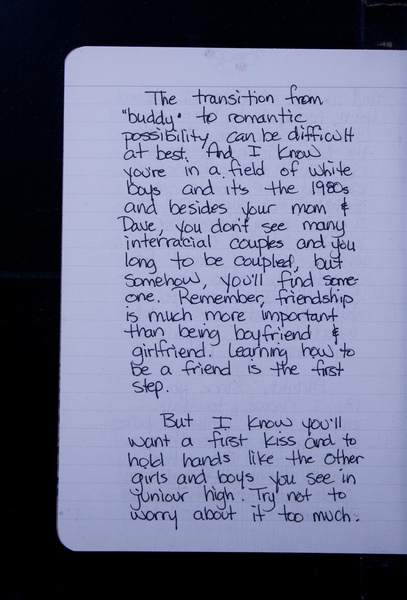 The transition from
"buddy" to romantic
possibility can be difficult
at best. And I know
you're in a field of white
boys and its the 1980s
and besides your mom &
Dave, you don't see many
interracial couples and you
long to be coupled, but
somehow, you'll find some-
one. Remember, friendship
is much more important
than being boyfriend &
girlfriend. Learning how to
be a friend is the first
step.
But I know you'll
want a first kiss and to
hold hands like the other
girls and boys you see in
juniour high. Try not to
worry about it too much.